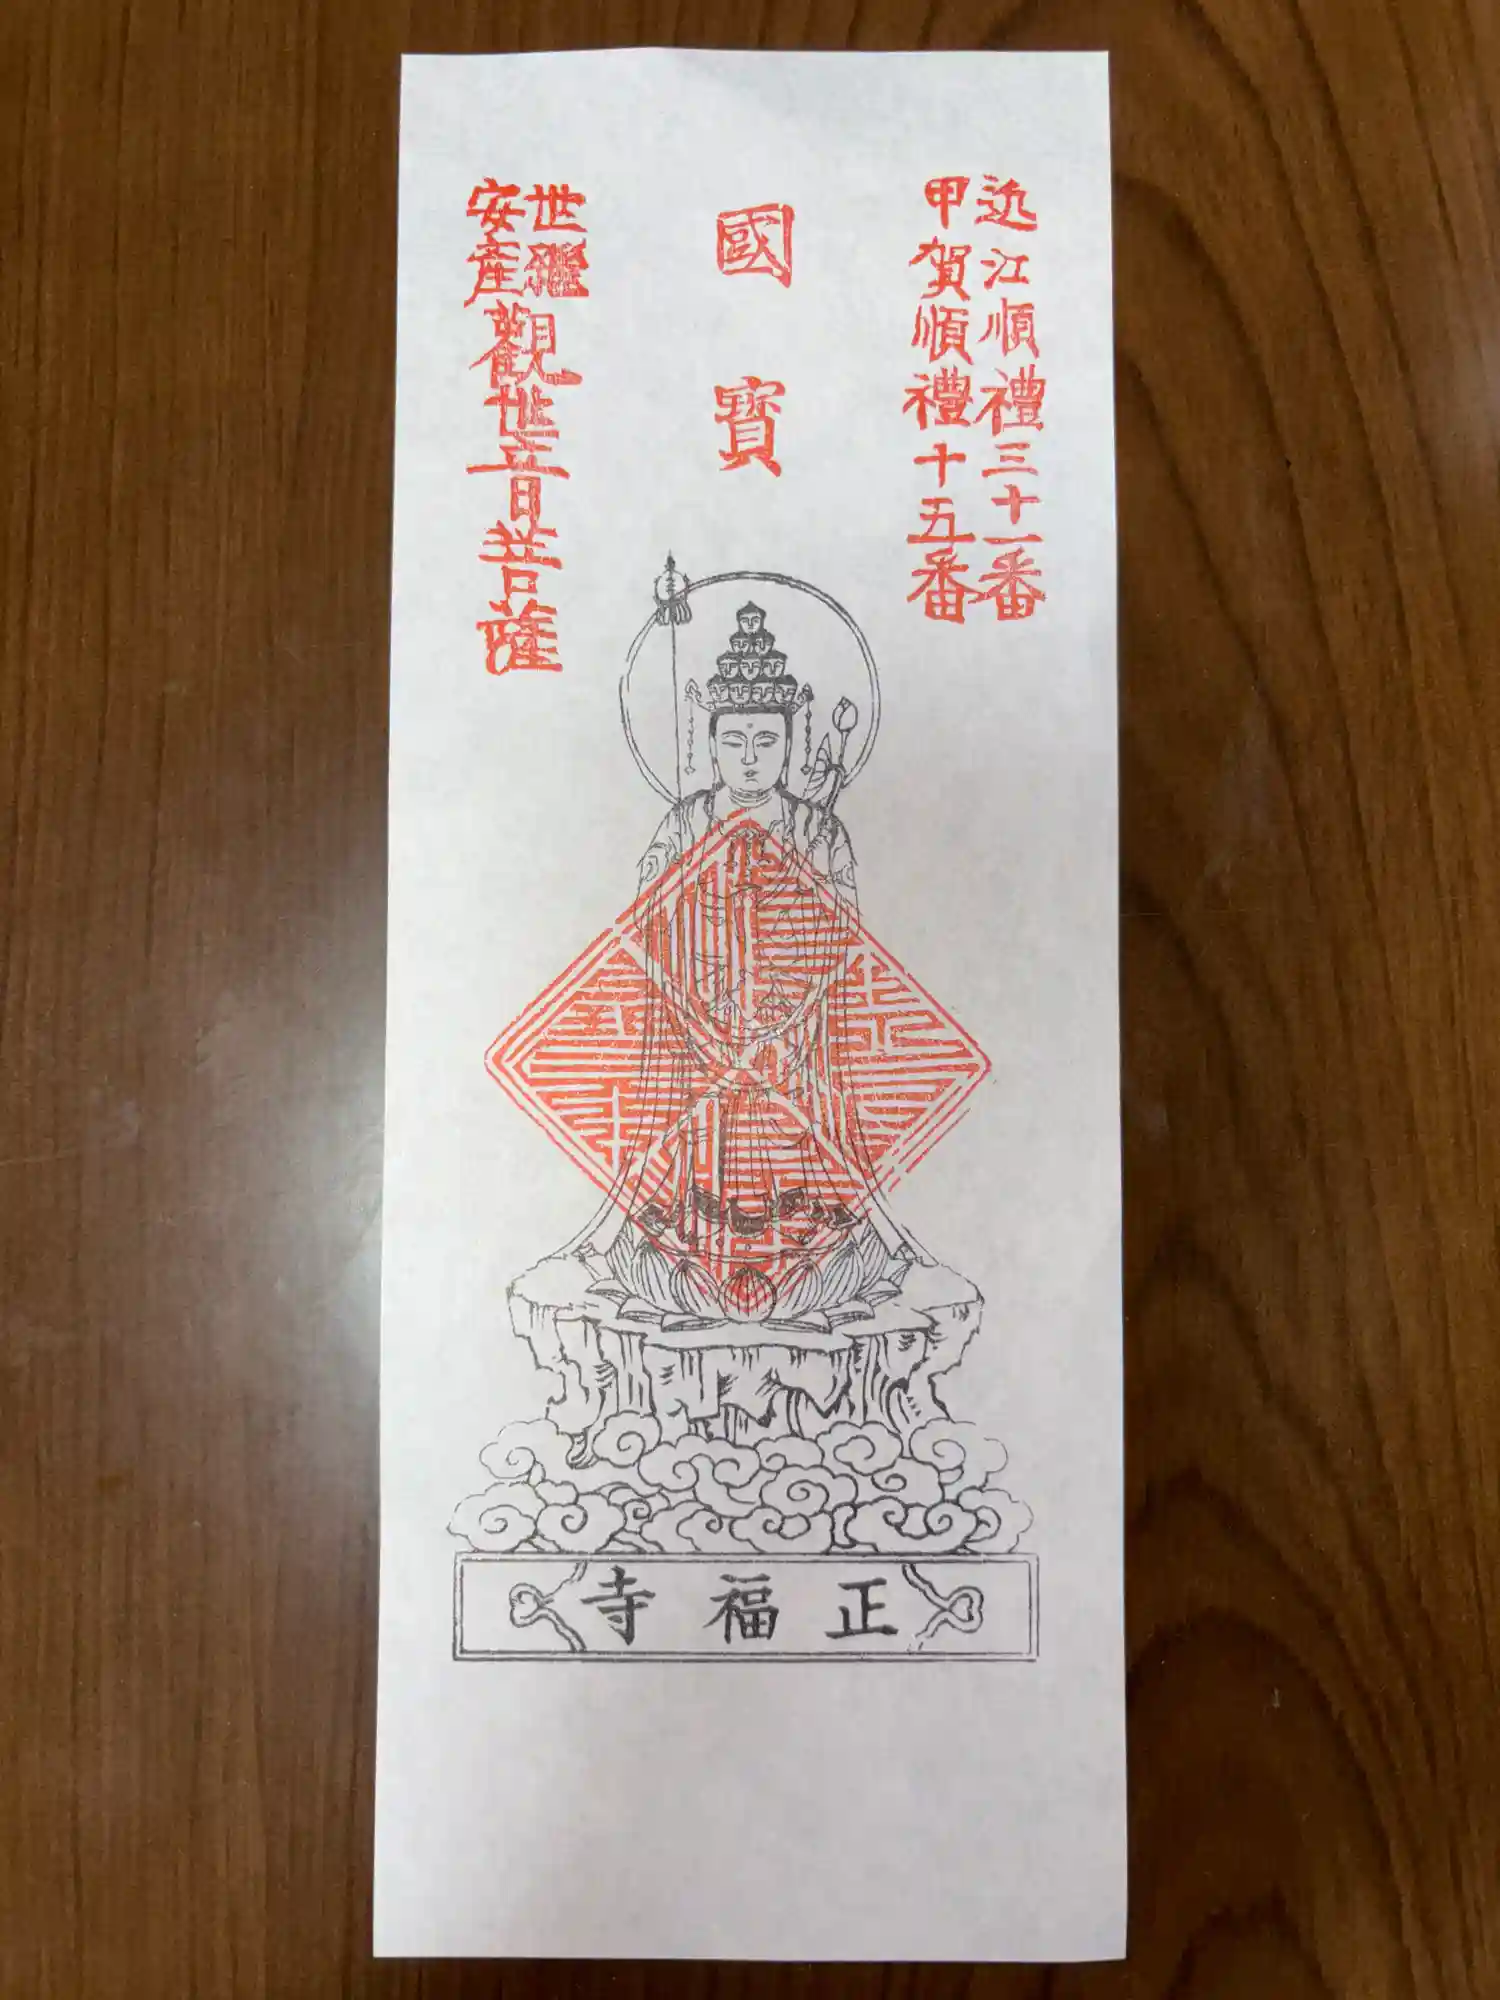 近江順禮三十一番
甲賀順禮十五番
國寳
世繼
安産
觀世音菩薩
正福寺